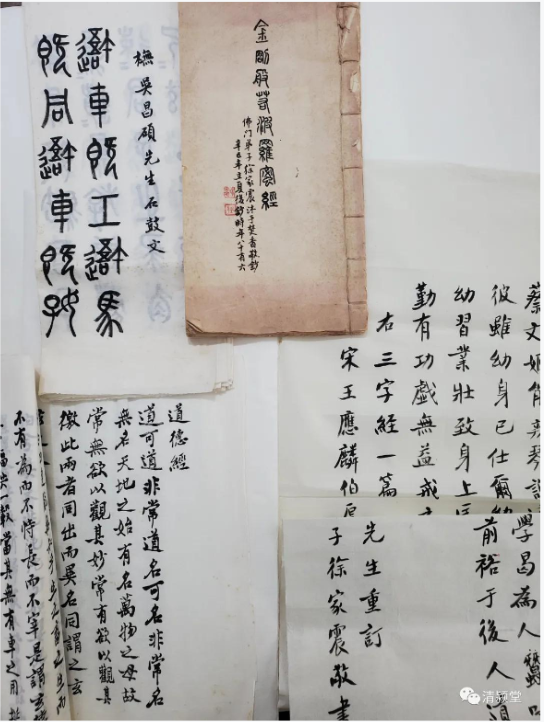 橅吳昌碩先生石鼓文
䢔車既工䢔馬
既同䢔車既好
金剛般若波羅蜜經
佛門弟子徐家震沐手焚香敬抄
辛巳年立夏後鈔時年八十有六
蔡文姬能辨琴謝
彼雖幼身已仕爾幼
幼習業壯致身上匡
勤有功戲無益戒
右三字經一篇
宋王應麟伯厚
學曷為人蠶吐
前裕于後人遺
先生重訂
子徐家震敬書
道德經
道可道非常道名可名非常名
無名天地之始有名萬物之母故
常無欲以觀其妙常有欲以觀其
徼此兩者同出而異名同謂之玄
不有為而不恃長而不宰是謂玄
共一轂當其無有車之用
清潁堂